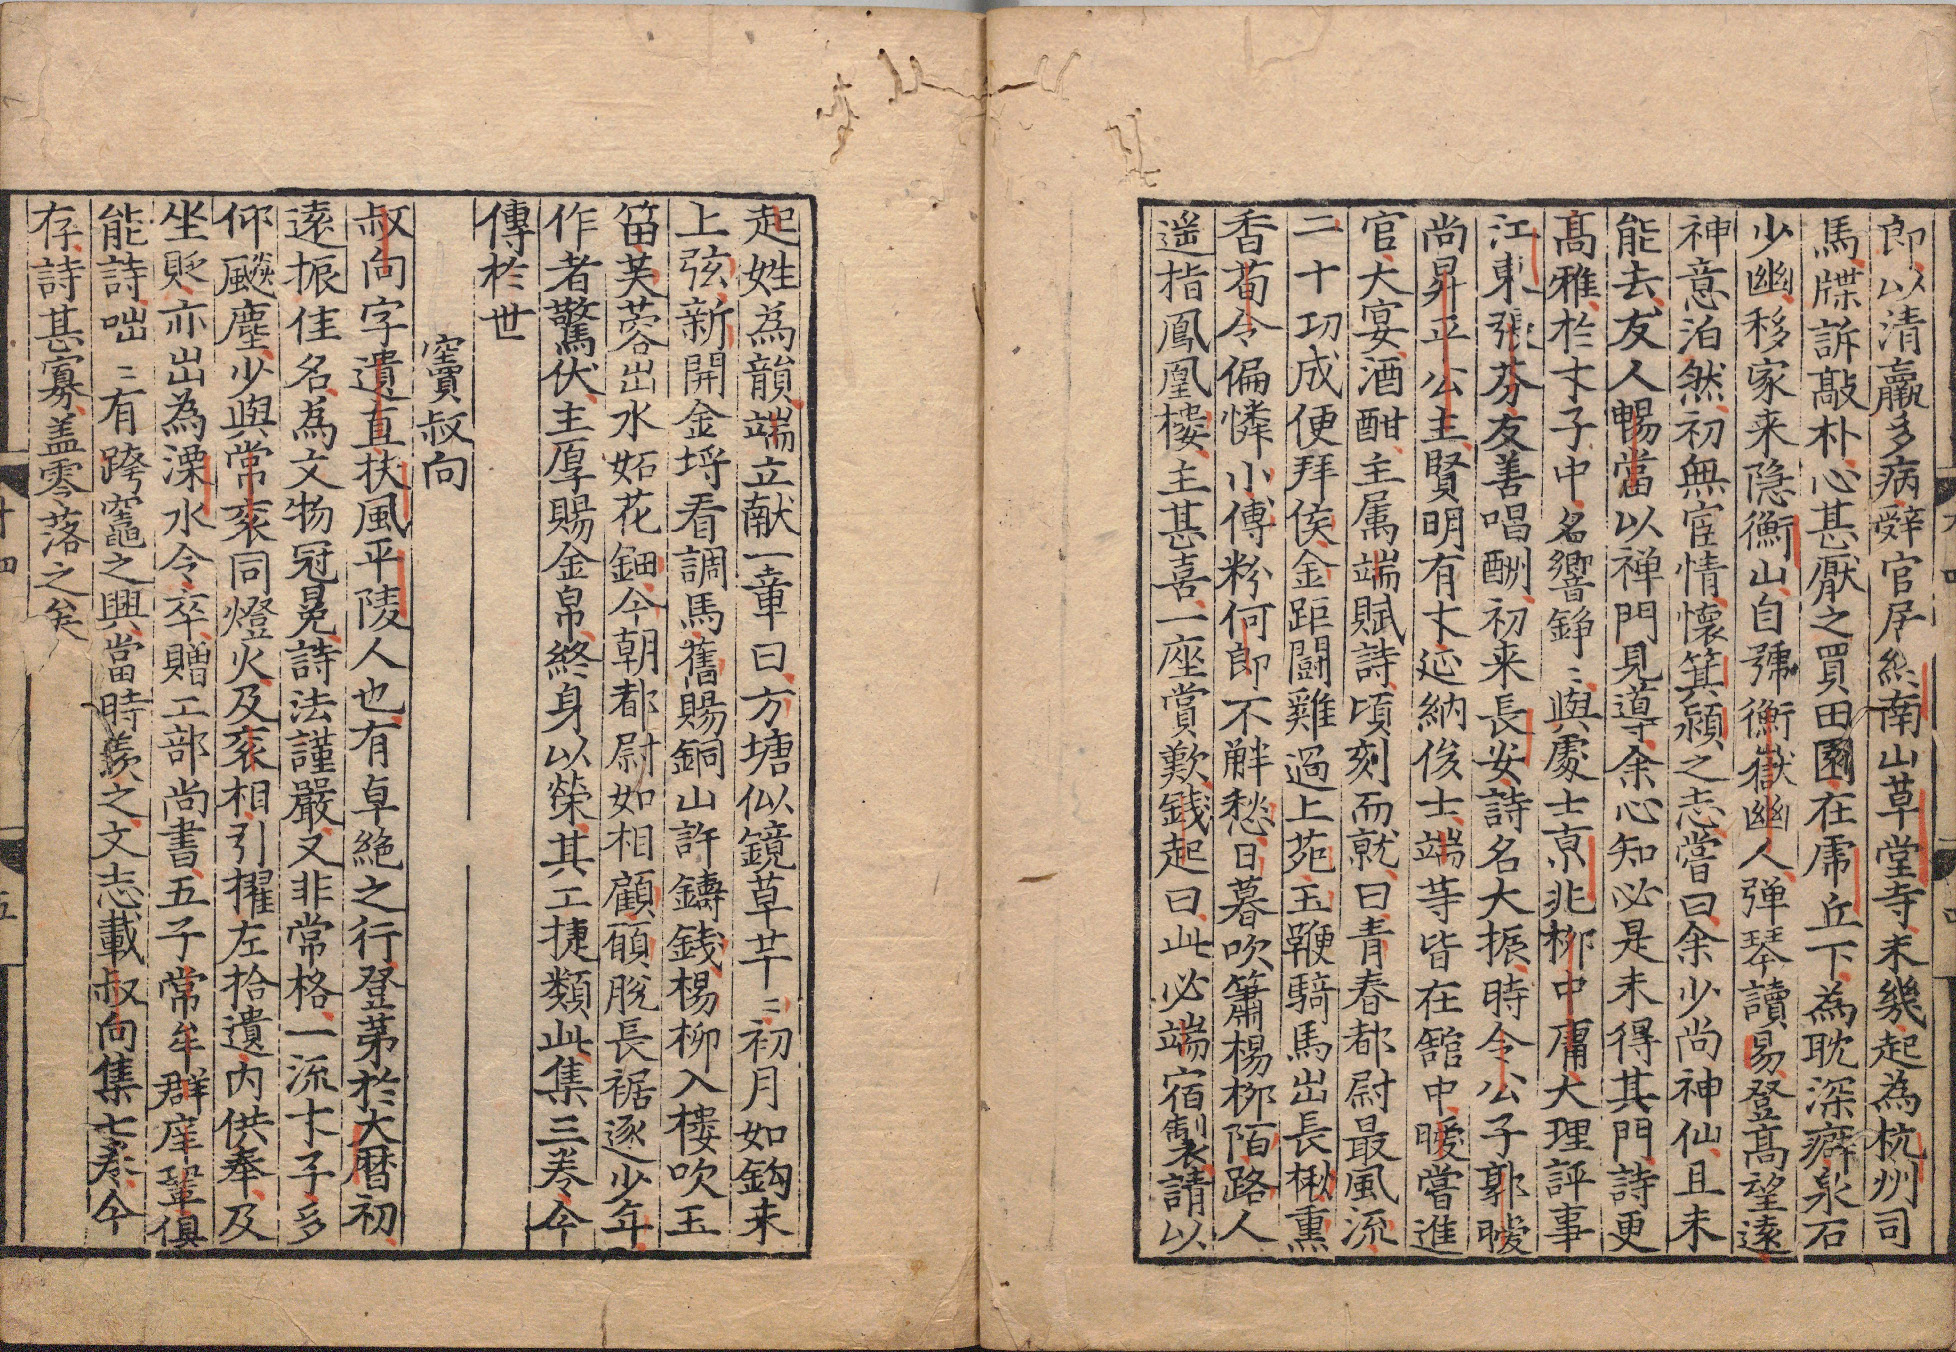 郎以清羸多病辤官居終南山草堂寺未幾起為杭州司
馬牒訴敲朴心甚厭之買田園在虎丘下為耽深癖泉石
少幽移家来隐衡山自號衡嶽幽人弾琴讀易登髙望遠
神意泊然初無宦情懷箕潁之志甞曰余少尚神仙且未
能去友人暢當以禅門見導余心知必是未得其門詩更
髙雅於才子中名響錚〻與處士京兆柳中庸大理評事
江東張芬友善唱酬初来長安詩名大振時令公子郭曖
尚昇平公主賢明有才延納俊士端䓁皆在舘中曖嘗進
官大宴酒酣主属端賦詩頃刻而就曰青春都尉最風流
二十功成便拜侯金距闘雞過上苑玉鞭騎馬出長楸熏
香荀令偏憐小傅粉何郎不觧愁日暮吹簫楊柳陌路人
遥指鳳凰樓主甚喜一座賞歎錢起曰此必端宿製請以
起姓為韻端立献一章曰方塘似鏡草芊〻初月如鈎未
上弦新開金埒看調馬舊賜銅山許鑄錢楊柳入樓吹玉
笛芙蓉出水妬花鈿今朝都尉如相顧願脱長裾逐少年
作者驚伏主厚賜金帛終身以榮其工捷類此集三卷今
傳於世
竇叔向
叔向字遺直扶風平陵人也有卓絶之行登第於大曆初
遠振佳名為文物冠冕詩法謹嚴又非常格一流才子多
仰飈塵少與常衮同燈火及衮相引擢左拾遺内供奉及
坐貶亦出為溧水令卒贈工部尚書五子常牟群庠鞏俱
能詩咄〻有跨竈之興當時羨之文志載叔向集七卷今
存詩甚寡盖零落之矣